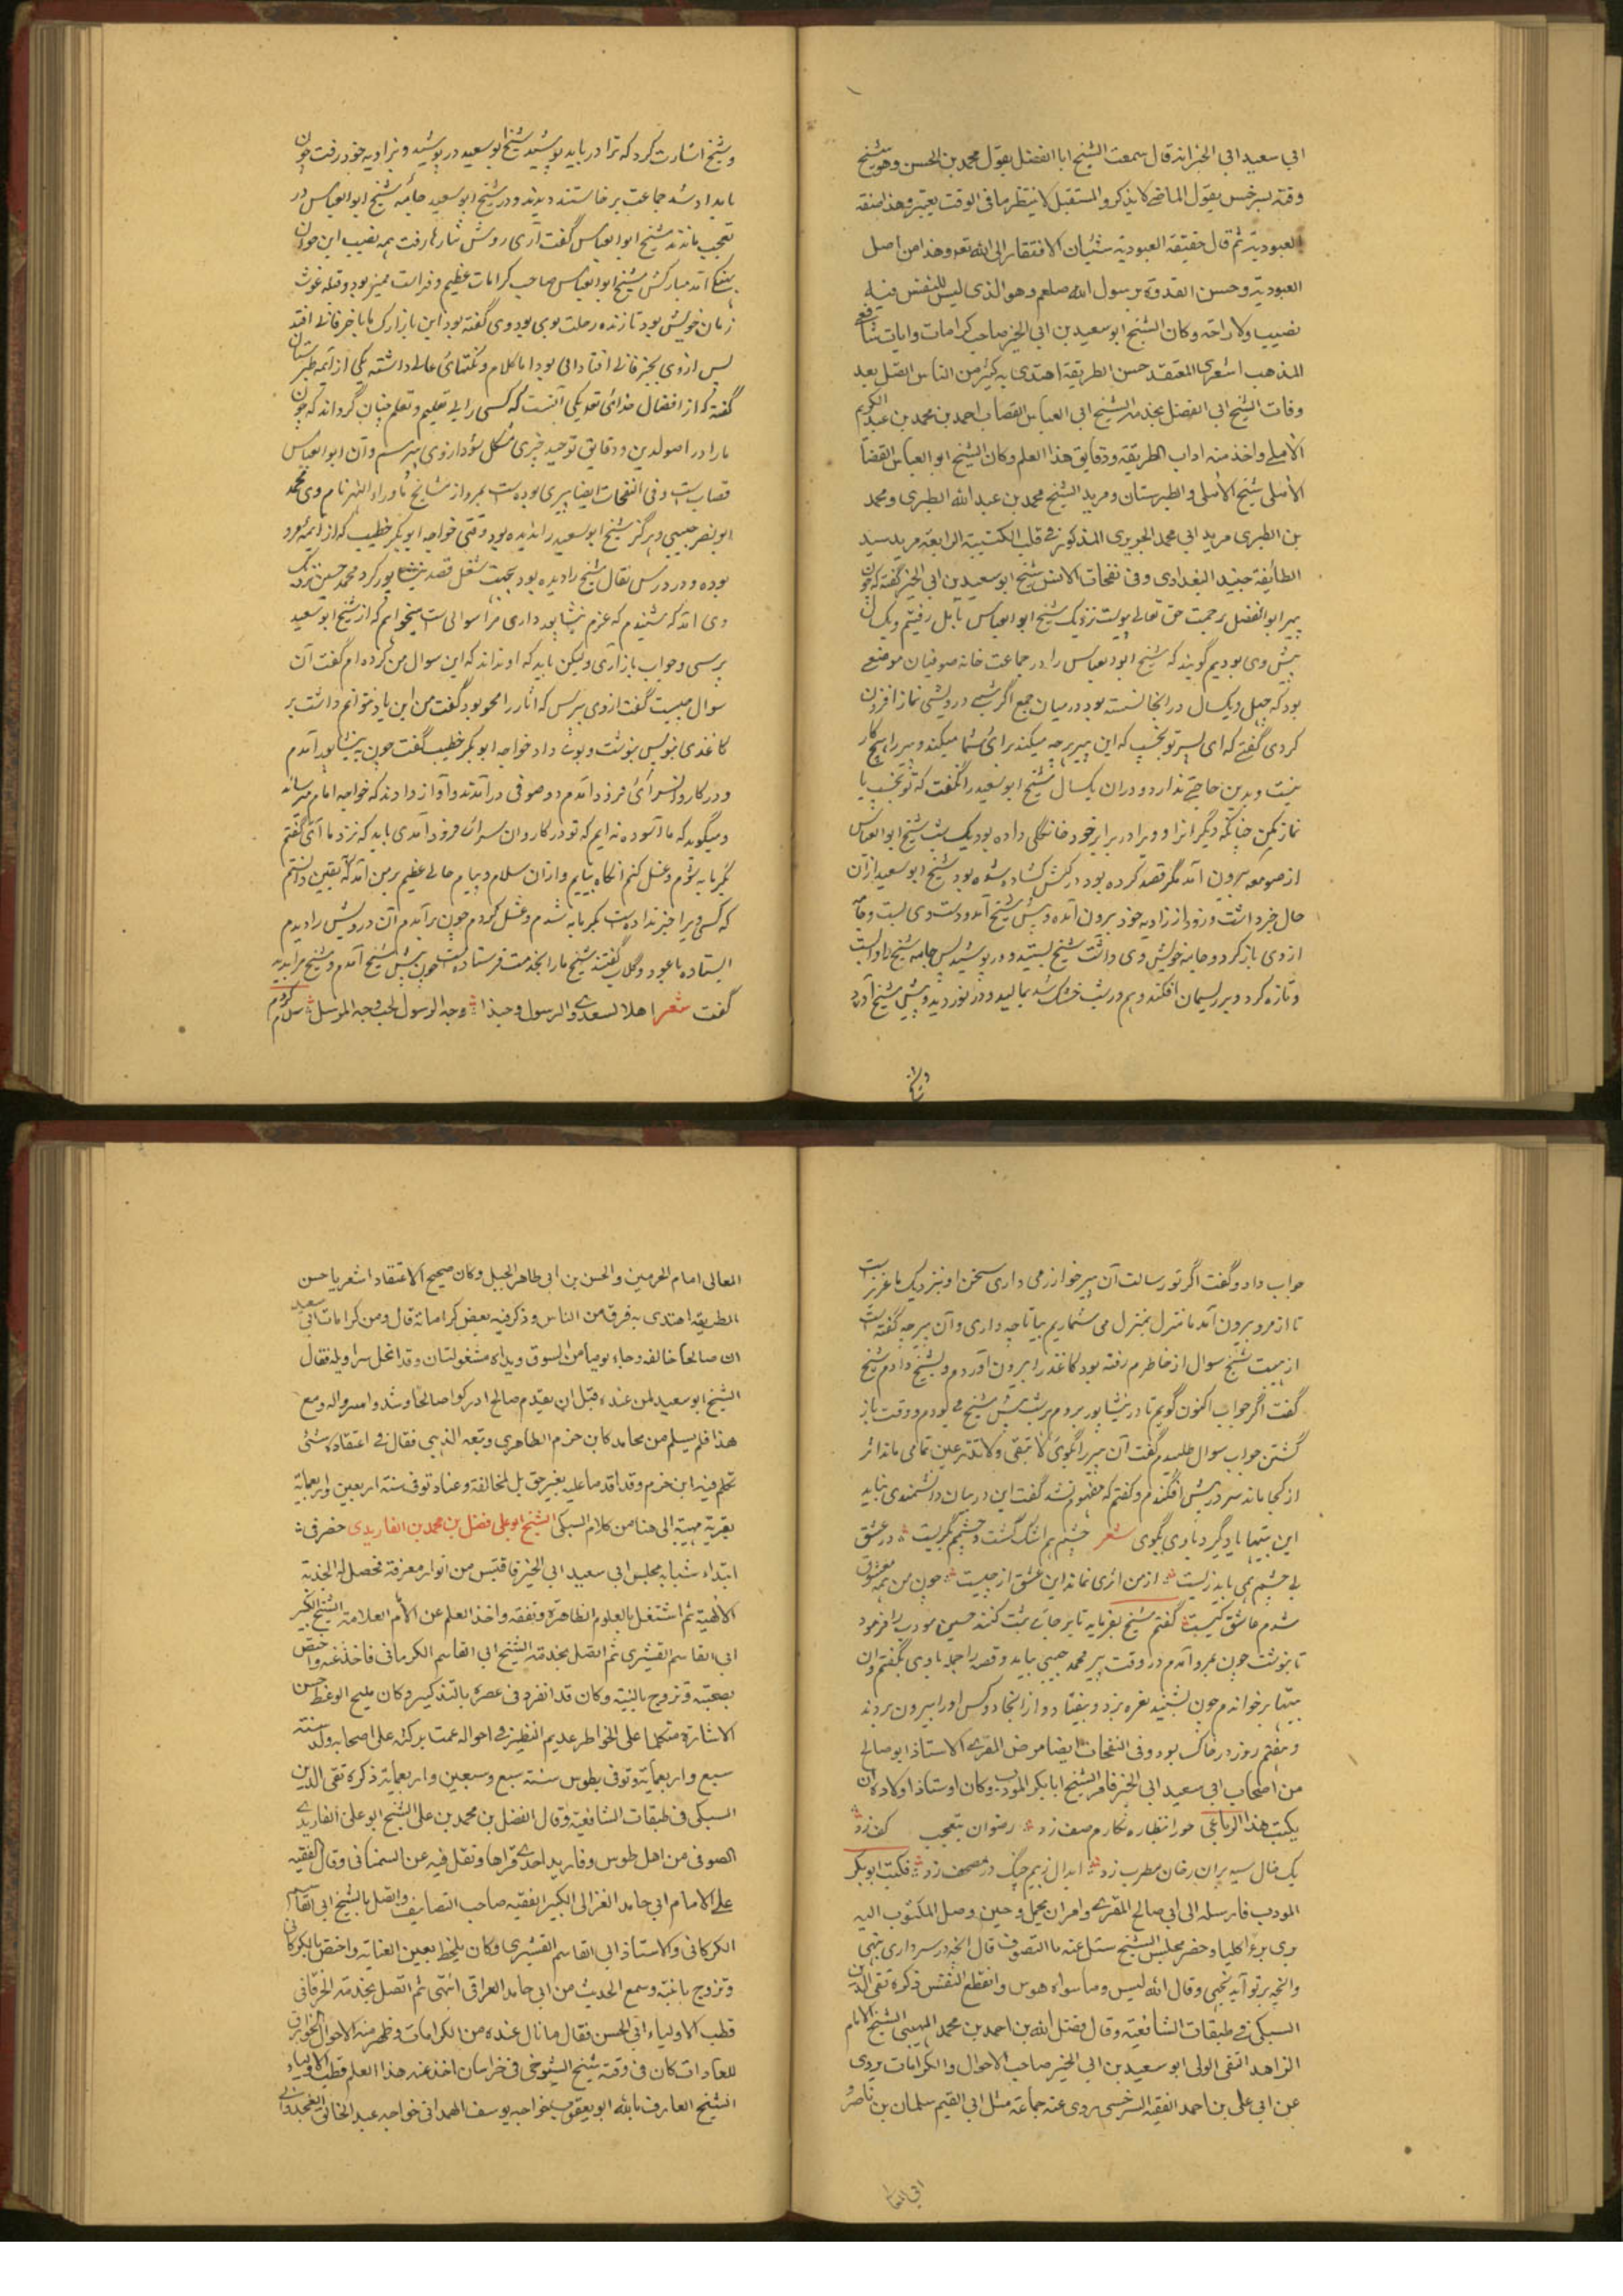 ابی سعید ابی الخیر انه قال سمعت الشیخ ابا الفضل یقول محمد بن الحسن وهو شیخ
وقته بسرخس یقول الماضی لا یذکر والمستقبل لا ینتظر ما فی الوقت یعتبر وهذا صفة
العبودیة ثم قال حقیقة العبودیة شیئان الافتقار الی الله تعه وهذا من اصل
العبودیة وحسن القدوة برسول الله صلعم وهو الذی لیس للنفس فیه
نصیب ولا راحة وکان الشیخ ابو سعید بن ابی الخیر صاحب کرامات وایات شافعی
المذهب اشعری المعتقد حسن الطریقة اهتدی به کثیر من الناس اتصل بعد
وفات الشیخ ابی الفضل بخدمة الشیخ ابی العباس القصاب احمد بن محمد بن عبد الکریم
الآملی واخذ منه اداب الطریقة ودقایق هذا العلم وکان الشیخ ابو العباس القصاب
الآملی شیخ الآملی والطبرستان ومرید الشیخ محمد بن عبد الله الطبری ومحمد
بن الطبری مرید ابی محمد الجریری المذکور فی قلب الکتیبة الرابعة مرید سید
الطائفة جنید البغدادی وفی نفحات الانس شیخ ابو سعید بن ابی الخیر گفته که چون
پیر ابو الفضل برحمت حق تعالی پیوست نزدیک شیخ ابو العباس بآمل رفتیم ویک سال
پیش وی بودیم گویند که شیخ ابو العباس را در جماعت خانه صوفیان موضعی
بود که چهل ویک سال در انجا نشسته بود در میان جمع اگر شبی درویشی نماز افزون
کردی گفتی که ای پسر تو بخسپ که این پیر هر چه میکند برای شما میکند و پیر را هیچ کار
نیست و بدین حاجتی ندارد و در ان یکسال شیخ ابو سعید را نگفت که تو بخسپ یا
نماز مکن چنانکه دیگرانرا و ویرا در برابر خود خانگی داده بود یک شب شیخ ابو العباس
از صومعه بیرون آمد مگر فصد کرده بود رگش گشاده شده بود شیخ ابو سعید از ان
حال خبر داشت و زود از زاویه خود بیرون آمد و پیش شیخ آمد و دست وی بست و جامه
از وی باز کرد و جامه خویش وی داشت شیخ بستد و در پوشید پس جامه شیخ را
و نازه کرد و بر ریسمان افکند و هم در شب خشک شد بمالید و در نوردید و پیش شیخ آورد
وشیخ اشارت کرد که ترا در باید پوشید شیخ ابو سعید در پوشید و بزاویه خود رفت چون
بامداد شد جماعت برخاستند دیدند در شیخ ابو سعید جامه شیخ ابو العباس در
تعجب ماندند شیخ ابو العباس گفت آری دوش نثارها رفت همه نصیب این جوان
آمد مبارکش شیخ ابو العباس صاحب کرامات عظیم و فراست ممیز بود و قبله غوث
زمان خویش بود تا زنده رحلت بوی بود وی گفته بود این بازارک ما با خرقانی افتد
پس از وی بخرقانی افتاد امی بود اما کلام و نکتهای عالی داشته یکی از ائمه طبرستان
گفته که از افضال خدای تعه یکی آنست که کسی را بی تعلیم و تعلم چنان گرداند که چون
ما را در اصول دین و دقایق توحید چیزی مشکل شود از وی بپرسیم وآن ابو العباس
قصابست وفی النفحات ایضا پیری بوده است بمرو از مشایخ ماوراء النهر نام وی محمد
ابو نصر حبیبی و هرگز شیخ ابو سعید را ندیده بود وقتی خواجه ابو بکر خطیب که از ائمه مرو
بوده و در درس قفال شیخ را دیده بود بجهت شغلی قصد نیشاپور کرد محمد حبیبی نزدیک
وی آمد که شنیدم که عزم نیشاپور داری مرا سوالی است میخواهم که از شیخ ابو سعید
پرسی و جواب باز آری ولیکن باید که او نداند که این سوال من کرده ام گفت آن
سوال چیست گفت از وی بپرس که آثار را محو بود گفت من این یاد نتوانم داشت بر
کاغذی بنویس بنوشت و بوی داد خواجه ابو بکر خطیب گفت چون به نیشاپور آمدم
و در کاروانسرای فرود آمدم دو صوفی در آمدند و آواز دادند که خواجه امام
و میگوید که ما آسوده نه ایم که تو در کاروان سرای فرود آمدی باید که نزد ما آئی گفتم
بگرمابه شوم و غسل کنم انکاه بیایم و از ان سلام و پیام حالی عظیم بر من آمد که یقین دانستم
که کسی ویرا خبر نداده است بگرمابه شدم و غسل کردم چون برآمدم آن درویش را دیدم
ایستاده با عود و گلاب گفتند شیخ ما را بخدمت فرستاده است چون پیش شیخ آمدم و شیخ مرا بدید
گفت شعر اهلا لسعدی والرسول وحبذا ❊ وجه الرسول لحب وجه المرسل ❊ سلام کردم
جواب داد و گفت اگر تو رسالت آن پیر خوار می داری سخن او بنزدیک ما عزیز است
تا از مرو بیرون آمدۀ ما منزل بمنزل می شماریم بیا تا چه داری و آن پیر چه گفته است
از هیبت شیخ سوال از خاطرم رفته بود کاغذ را بیرون آوردم و بشیخ دادم شیخ
گفت اگر جواب اکنون گویم تا در نیشاپور بودم هر شب پیش شیخ می بودم و وقت باز
گشتن جواب سوال طلبیدم گفت آن پیر را بگوی لا تبقی ولا تذر عین نمی ماند اثر
از کجا ماند سر در پیش افکندم و گفتم که مفهوم نشد گفت این در بیان دانشمندی نیاید
این بیتها یاد گیر و با وی بگوی شعر جسمم همه اشک گشت و چشمم بگریست ❊ در عشق
بی جسم همی باید زیست ❊ از من اثری نماند این عشق از چیست ❊ چون من همه معشوق
شدم عاشق کیست گفتم شیخ بفرماید تا بر جائی ثبت کنند حسن مودب را فرمود
تا بنوشت چون بمرو آمدم در وقت پیر محمد حبیبی بیامد و قصه را جمله با وی بگفتم و آن
بیتها بر خواندم چون بشنید نعره بزد و بیفتاد و از انجا دو کس او را بیرون بردند
و هفتم روز در خاک بود وفی النفحات ایضا مرض المقری الاستاذ ابو صالح
من اصحاب ابی سعید ابی الخیر فامر الشیخ ابا بکر المودب وکان اوستاذ اولاده ان
یکتب هذا الرباعی حورا بنظاره نگارم صف زد ❊ رضوان بتعجب کف زد
یک خال سیه بران رخان مطرف زد ❊ ابدال ز بیم چنگ در مصحف زد ❊ فکتب ابو بکر
المودب فارسله الی ابی صالح المقری وامر ان یحمل وحین وصل المکتوب الیه
بری برء اکلیا وحضر مجلس الشیخ سئل عنه ما التصوف قال انچه در سر داری بنهی
وانچه بر تو آید نجهی وقال الله لیس وما سواه هوس وانقطع النفس ذکره تقی الدین
السبکی فی طبقات الشافعیة وقال فضل الله بن احمد بن محمد المیهنی الشیخ الامام
الزاهد التقی الولی ابو سعید بن ابی الخیر صاحب الاحوال والکرامات یروی
عن ابی علی بن احمد الفقیه السرخسی روی عنه جماعة مثل ابی القسم سلمان بن ناصر و
المعالی امام الحرمین والحسن بن ابی طاهر الجبل وکان صحیح الاعتقاد اشعریا حسن
الطریقة اهتدی به فرق من الناس وذکر فیه بعض کراماته قال ومن کرامات ابی سعید
ان صالحا خالفه وجاء یوما من السوق ویداه مشغولتان وقد انحل سراویله فقال
الشیخ ابو سعید لمن عنده قبل ان یقدم صالح ادرکوا صالحا وشدوا سرواله ومع
هذا فلم یسلم من محامد کابن حزم الظاهری وتبعه الذهبی فقال فی اعتقاده شئ
تکلم فیه ابن حزم وقد اقدما علیه بغیر حق بل لمخالفة وعناد توفی سنة اربعین واربعمایة
بقریة میهنة الی هنا من کلام السبکی الشیخ ابو علی فضل بن محمد بن الفاریدی حضر فی
ابتداء شبابه مجلس ابی سعید ابی الخیر فاقتبس من انوار معرفة فحصل له الجذبة
الالهیة ثم اشتغل بالعلوم الظاهرة وتفقه واخذ العلم عن الامام العلامة الشیخ الکبیر
ابی القاسم القشیری ثم اتصل بخدمة الشیخ ابی القاسم الکرمانی فاخذ عنه واختص
بصحبته وتزوج بابنته وکان قد انفرد فی عصره بالتذکیر وکان ملیح الوعظ حسن
الاشارة متکلما علی الخواطر عدیم النظیر فی احواله عمت برکته علی اصحابه ولد سنة
سبع واربعمایة وتوفی بطوس سنة سبع وسبعین واربعمایة ذکره تقی الدین
السبکی فی طبقات الشافعیة وقال الفضل بن محمد بن علی الشیخ ابو علی الفاریدی
الصوفی من اهل طوس وفارید احدی قراها ونقل فیه عن السمعانی وقال الفقیه
علی الامام ابی حامد الغزالی الکبیر الفقیه صاحب التصانیف واتصل بالشیخ ابی القاسم
الکرکانی والاستاذ ابی القاسم القشیری وکان یلحظ بعین العنایة واختص بالکرکانی
وتزوج بابنته وسمع الحدیث من ابی حامد العراقی انتهی ثم اتصل بخدمة الخرقانی
قطب الاولیاء ابی الحسن فقال ما نال عنده من الکرامات وظهر منه الاحوال الخوارق
للعادات کان فی وقته شیخ الشیوخ فی خراسان اخذ عنه هذا العلم قطب الاولیاء
الشیخ العارف بالله ابو یعقوب خواجه یوسف الهمدانی خواجه عبد الخالق الغجدوانی